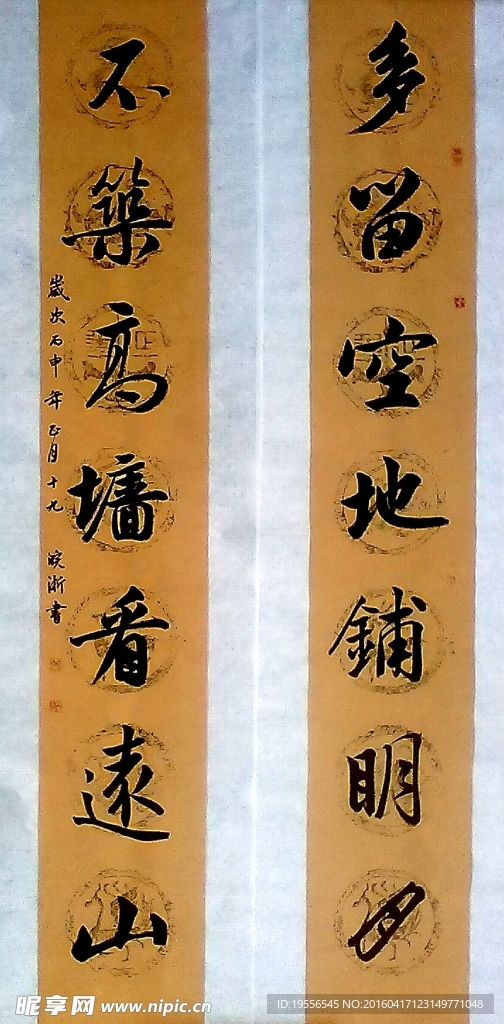 多留空地鋪明月
不築高墻看遠山
歲次丙申年正月十九 皖浙書
昵享网 www.nipic.cn
ID:19556545 NO:20160417123149771048